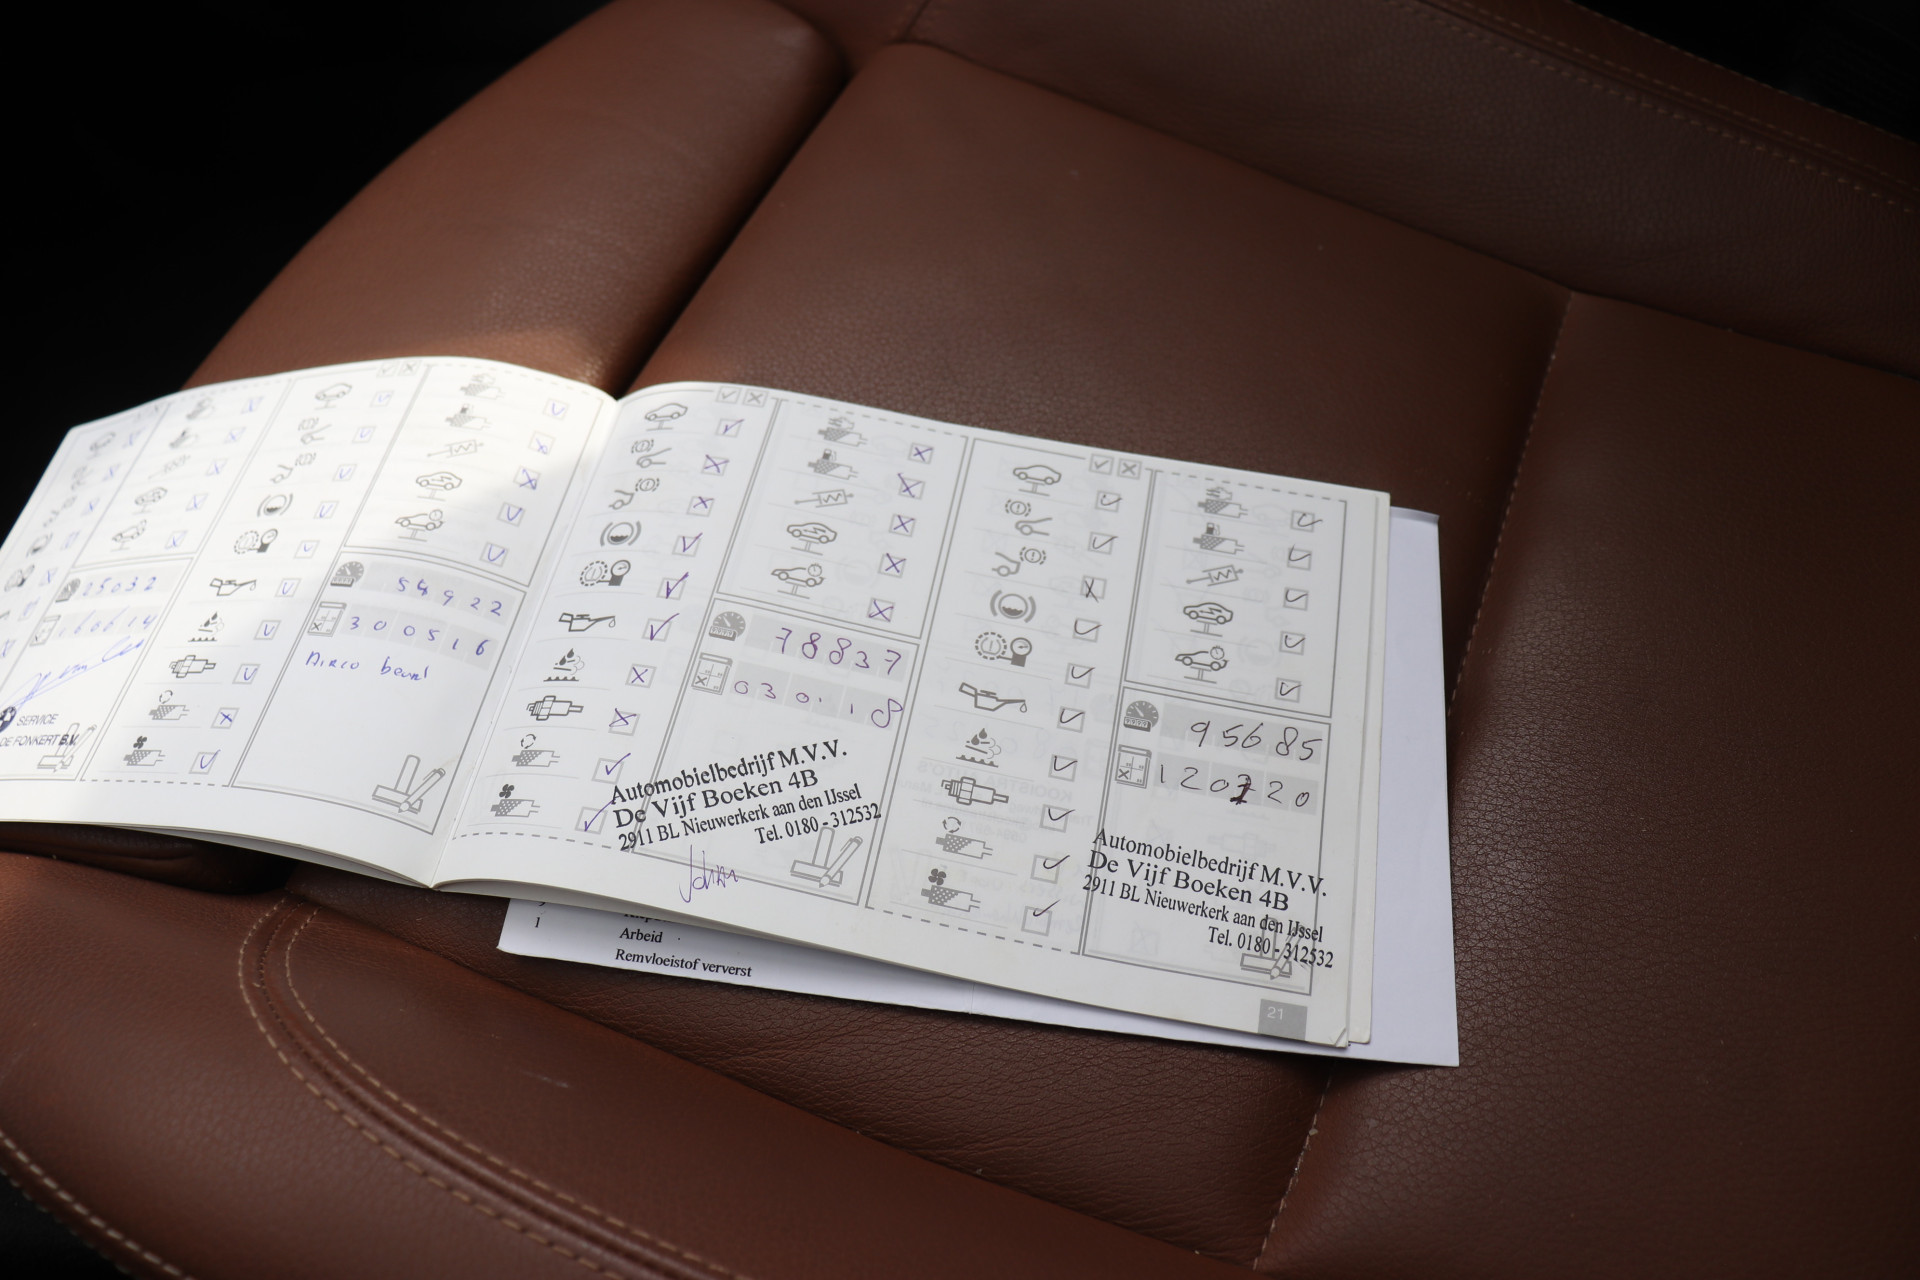 25032
160614
SERVICE
DE FONKERT B.V.
54922
300516
Airco
78837
Automobielbedrijf M.V.V.
De Vijf Boeken 4B
2911 BL Nieuwerkerk aan den IJssel
Tel. 0180 - 312532
95685
120720
Automobielbedrijf M.V.V.
De Vijf Boeken 4B
2911 BL Nieuwerkerk aan den IJssel
Tel. 0180 - 312532
21
1
Arbeid
Remvloeistof ververst